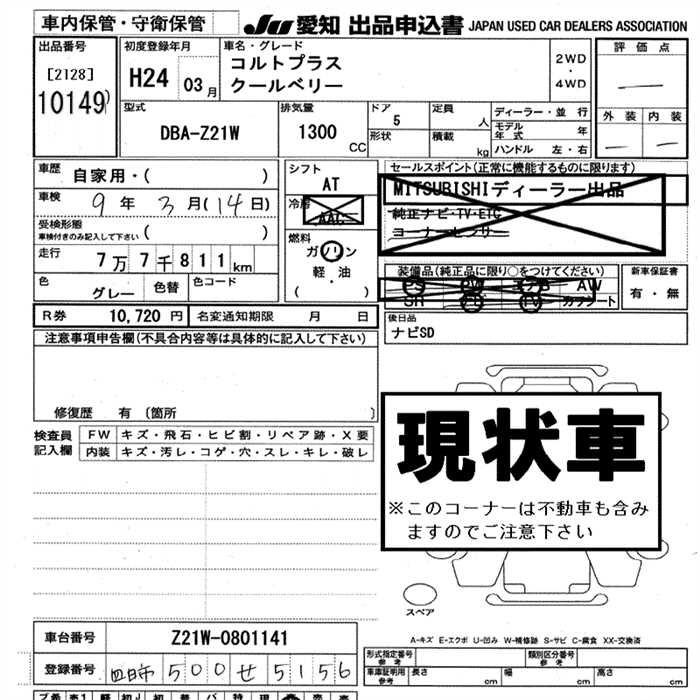 車内保管・守衛保管
JU 愛知 出品申込書 JAPAN USED CAR DEALERS ASSOCIATION
出品番号
[2128]
10149
初度登録年月
H24 03月
車名・グレード
コルトプラス
クールベリー
2WD
・
4WD
評価点
外装 内装
型式
DBA-Z21W
排気量
1300
CC
ドア
5
形状
定員
人
積載
kg
ディーラー・並行
モデル年式 年
ハンドル 左・右
車歴
自家用・( )
車検
9年3月(14日)
受検形態
車検付きのみ記入して下さい ( )
走行
7万7千811km
色
グレー
色替
色コード
シフト
AT
冷房
AAC
燃料
ガソリン
軽・油
( )
セールスポイント(正常に機能するものに限ります)
MITSUBISHIディーラー出品
純正ナビ・TV・ETC
コーナーセンサー
装備品(純正品に限り○をつけてください)
PS PW ・ナビ AW
SR ・TV カワシート
新車保証書
有・無
R券 10,720円
名変通知期限 月 日
後日品
ナビSD
注意事項申告欄(不具合内容等は具体的に記入して下さい)
修復歴 有 〔箇所 〕
検査員
記入欄
FW キズ・飛石・ヒビ割・リペア跡・X要
内装 キズ・汚レ・コゲ・穴・スレ・キレ・破レ
現状車
※このコーナーは不動車も含み
ますのでご注意下さい
スペア
A-キズ E-エクボ U-凹み W-補修跡 S-サビ C-腐食 XX-交換済
車台番号
Z21W-0801141
登録番号
四日市 500 せ 5156
形式指定番号
参考
類別区分番号
参考
車庫証明用
参考
長さ cm
幅 cm
高さ cm